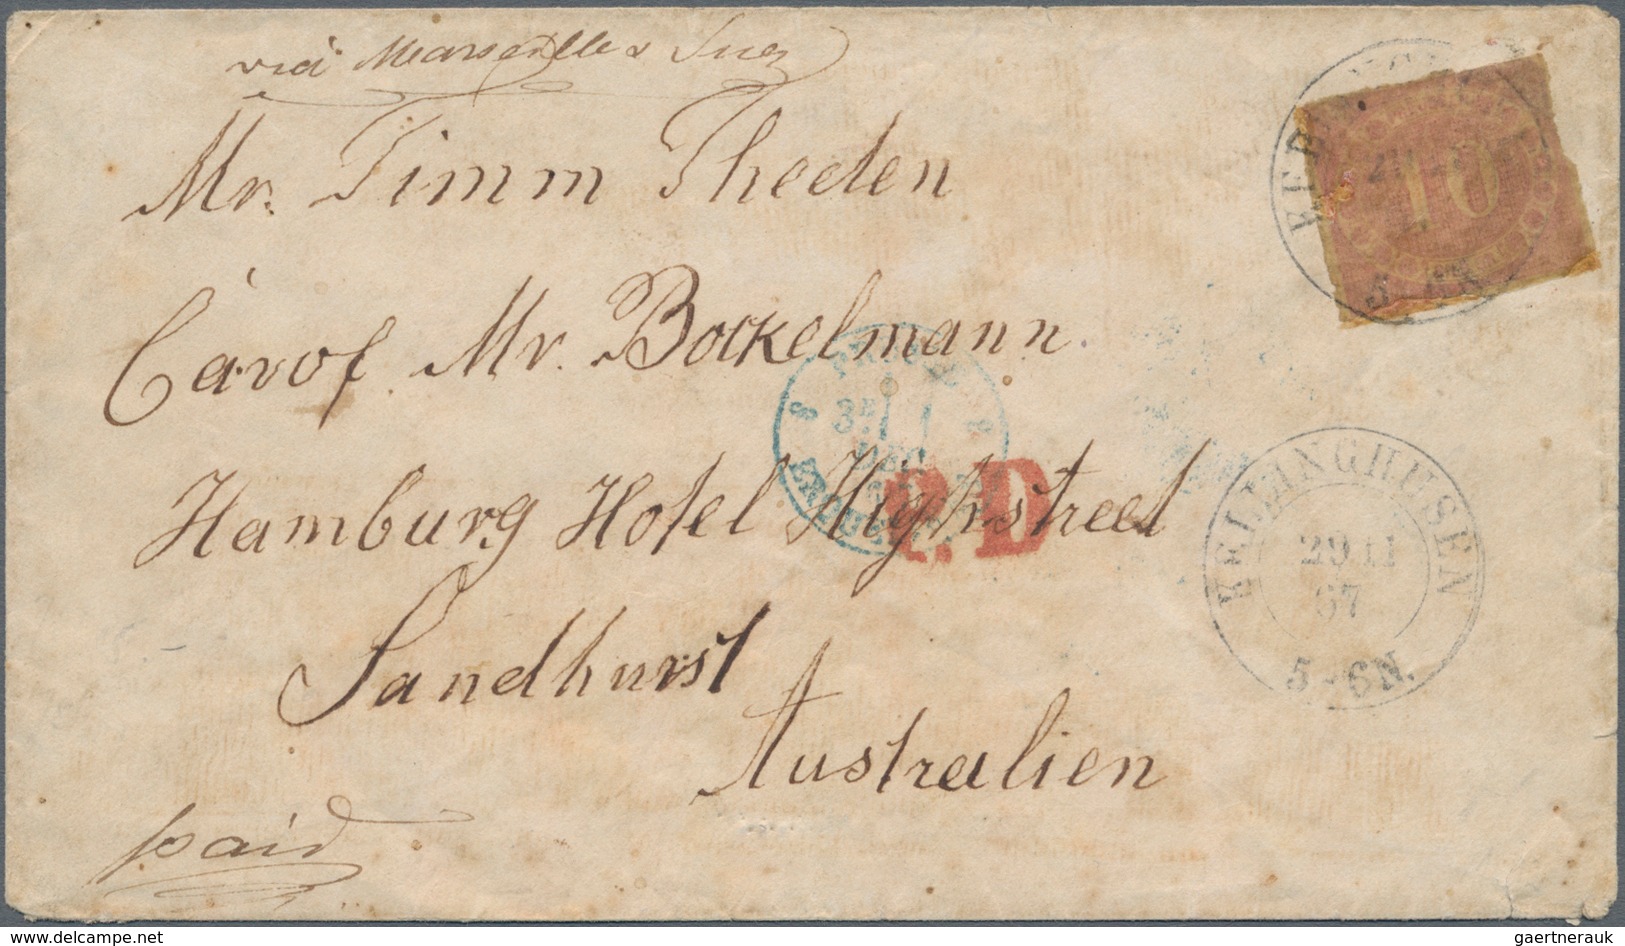 via Marseille & Suez
Mr. Timm Theden
Carof Mr. Bockelmann
Hamburg Hotel Highstreet
Sandhurst
Australien
paid
10
3E 1
DEC
P.D
KELLINGHUSEN
29 11
67
5-6N.
www.delcampe.net
gaertnerauk